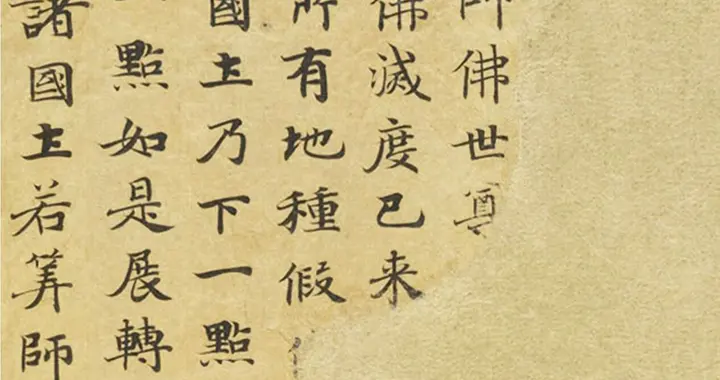 師佛世尊
佛滅度已来
所有地種假
國土乃下一點
點如是展轉
諸國土若筭師